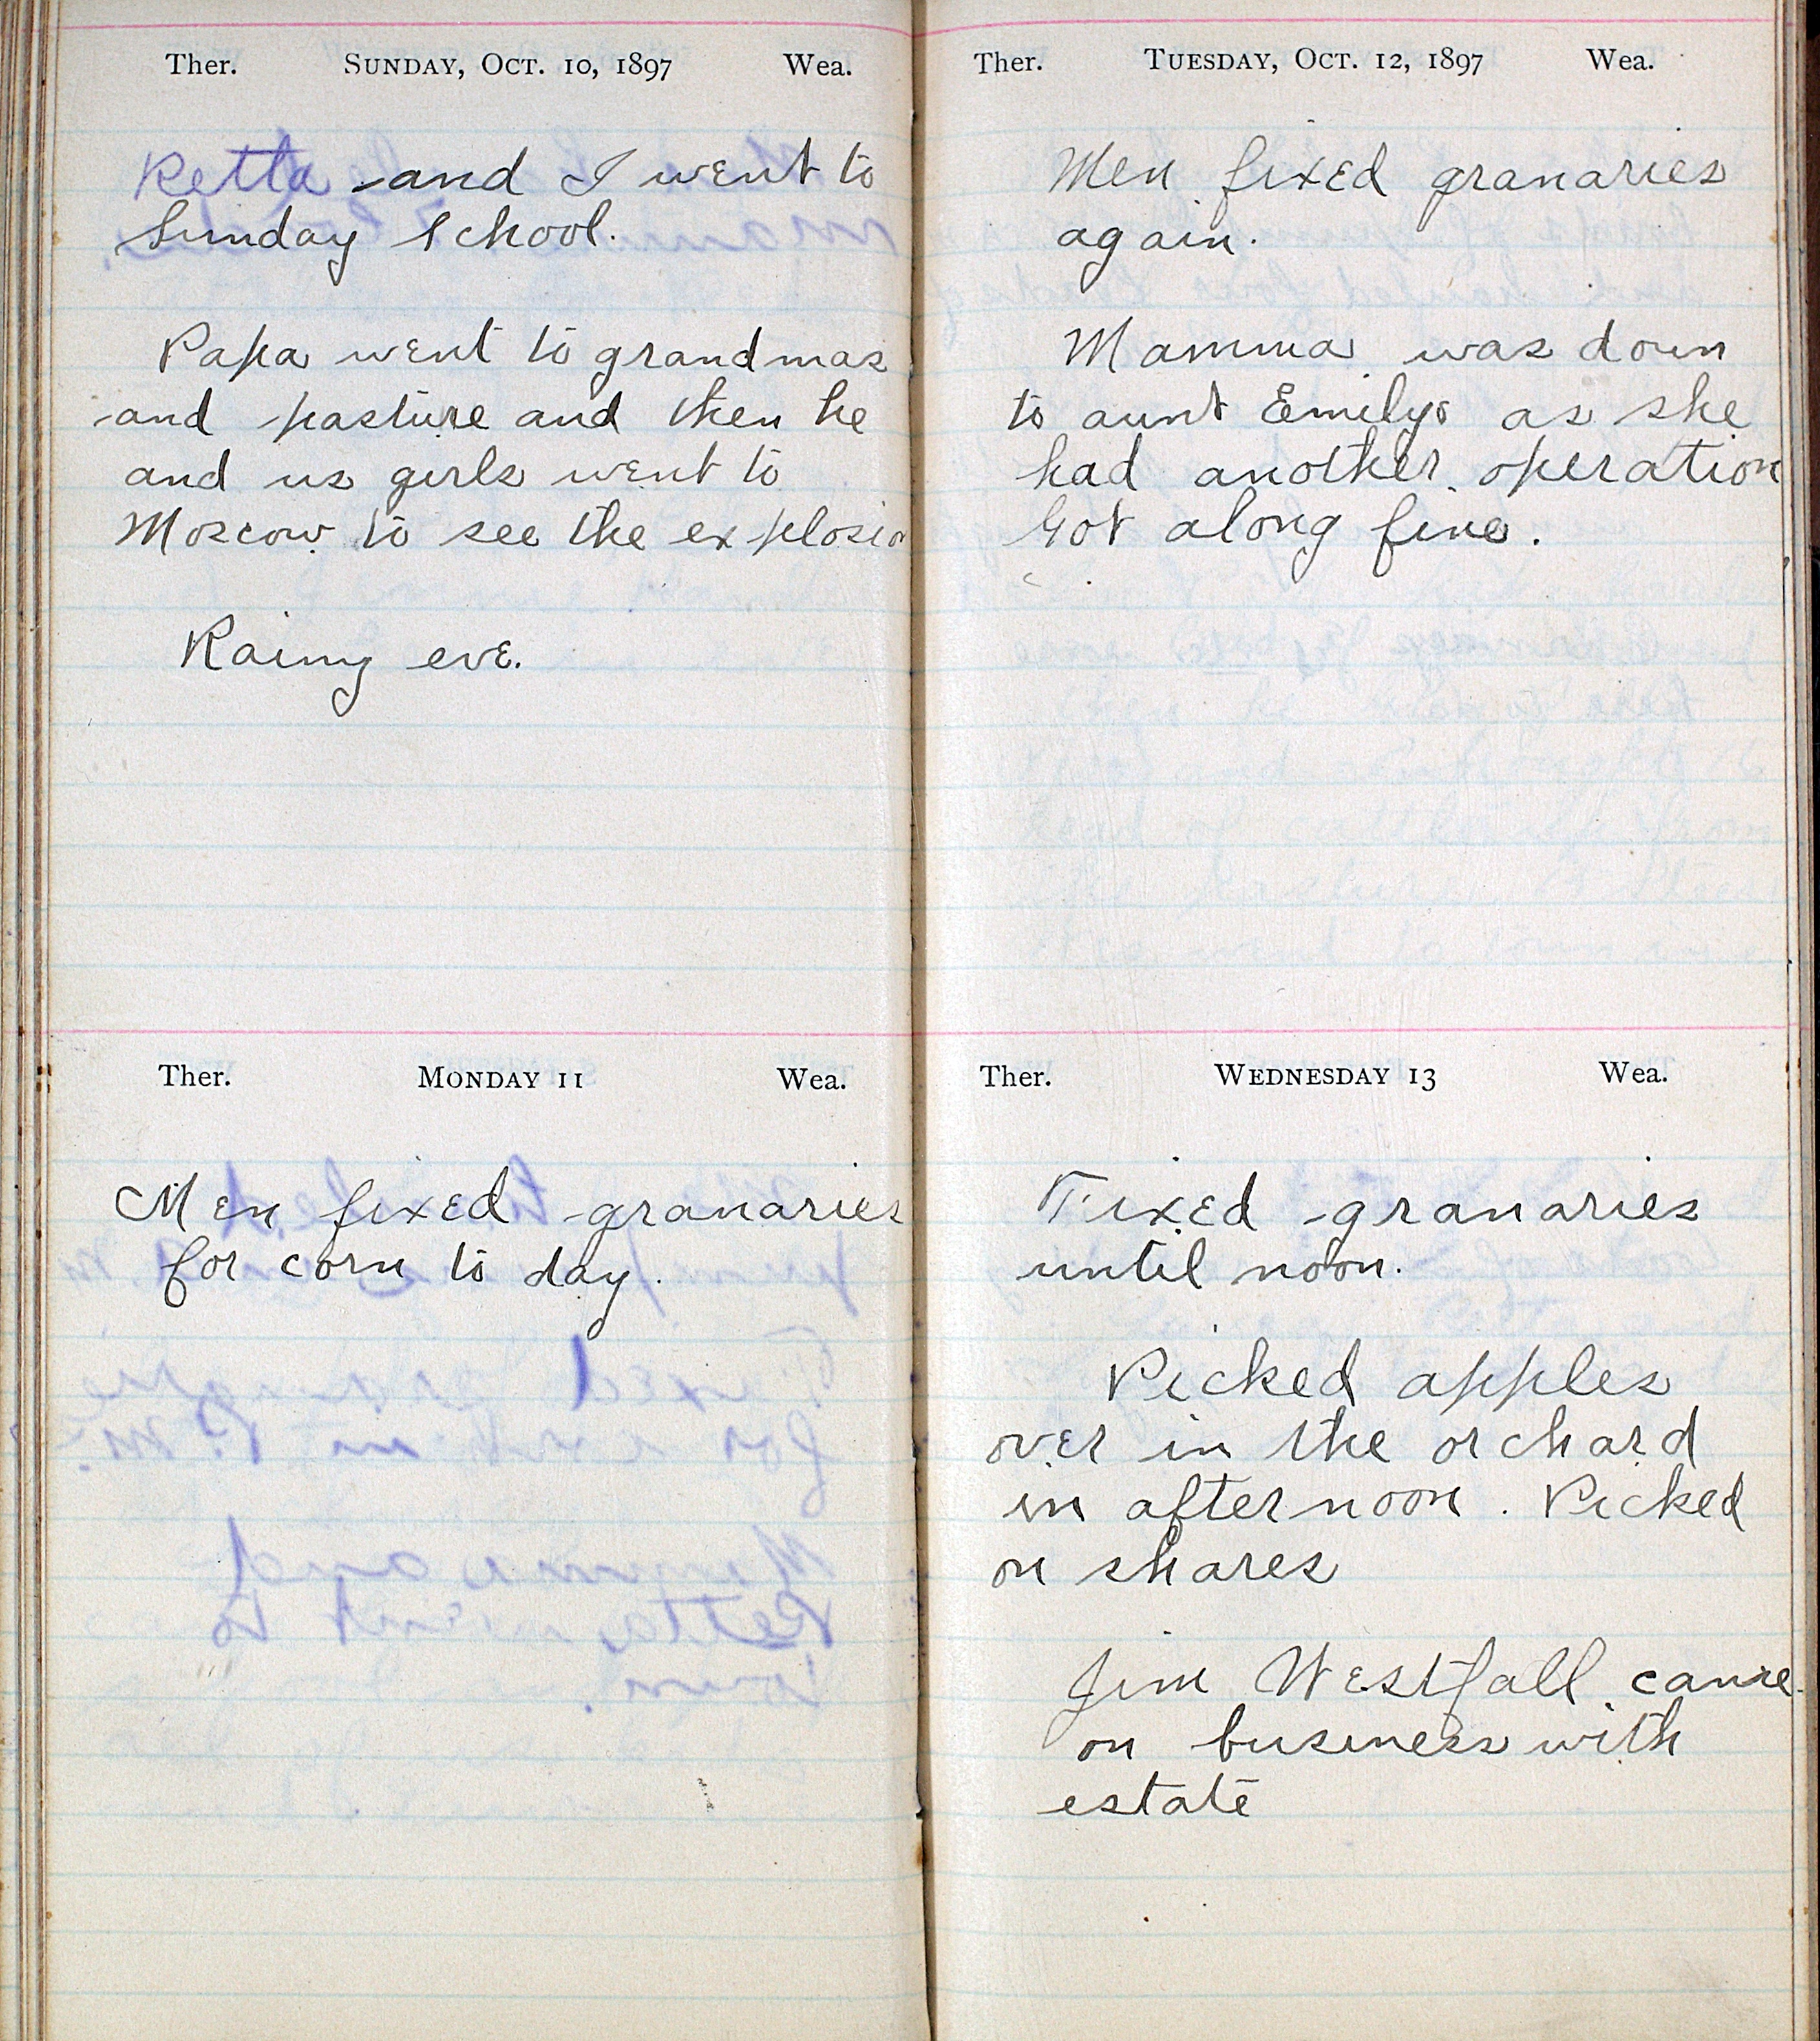 Ther. SUNDAY, OCT. 10, 1897 Wea.
Retta and I went to
Sunday School.
Papa went to grandmas
and pasture and then he
and us girls went to
Moscow to see the explosion
Rainy eve.
Ther. MONDAY 11 Wea.
Men fixed granaries
for corn to day.
Ther. TUESDAY, OCT. 12, 1897 Wea.
Men fixed granaries
again.
Mamma was down
to aunt Emilys as she
had another operation
Got along fine.
Ther. WEDNESDAY 13 Wea.
Fixed granaries
until noon.
Picked apples
over in the orchard
in afternoon. Picked
on shares
Jim Westfall came
on business with
estate